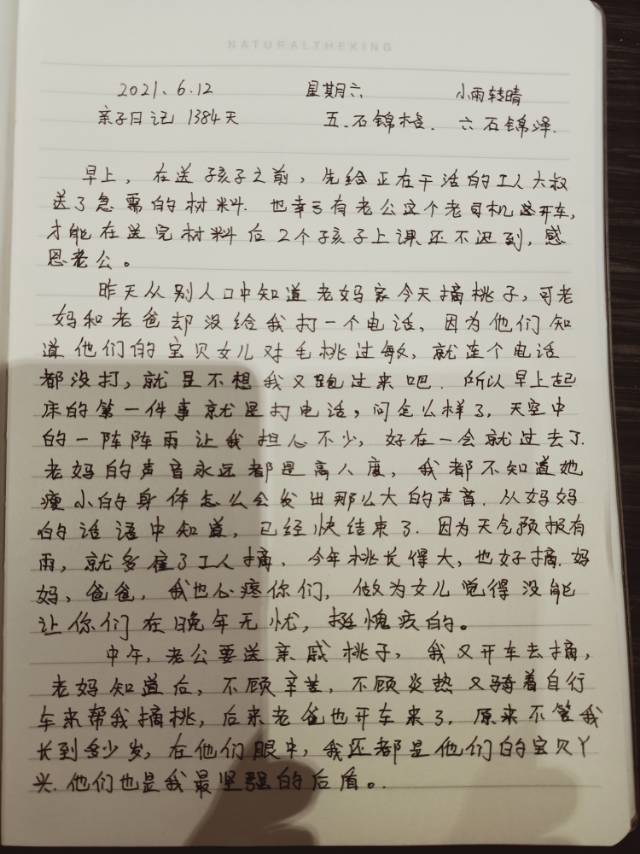 NATURALTHEKING
2021.6.12 星期六 小雨转晴
亲子日记 1384天 五.石锦栋. 六石锦泽.
早上，在送孩子之前，先给正在干活的工人大叔
送了急需的材料.也幸亏有老公这个老司机送开车,
才能在送完材料后2个孩子上课还不迟到,感
恩老公。
昨天从别人口中知道老妈家今天摘桃子,可老
妈和老爸却没给我打一个电话,因为他们知
道他们的宝贝女儿对毛桃过敏,就连个电话
都没打,就是不想我又跑过来吧.所以早上起
床的第一件事就是打电话,问怎么样了,天空中
的一阵阵雨让我担心不少,好在一会就过去了.
老妈的声音永远都是高八度,我都不知道她
瘦小的身体怎么会发出那么大的声音.从妈妈
的话语中知道,已经快结束了.因为天气预报有
雨,就多雇了工人摘.今年桃长得大,也好摘.妈
妈、爸爸,我也心疼你们,做为女儿觉得没能
让你们在晚年无忧,挺愧疚的。
中午,老公要送亲戚桃子,我又开车去摘,
老妈知道后,不顾辛苦,不顾炎热又骑着自行
车来帮我摘桃,后来老爸也开车来了.原来不管我
长到多少岁,在他们眼中,我还都是他们的宝贝丫
头.他们也是我最坚强的后盾。